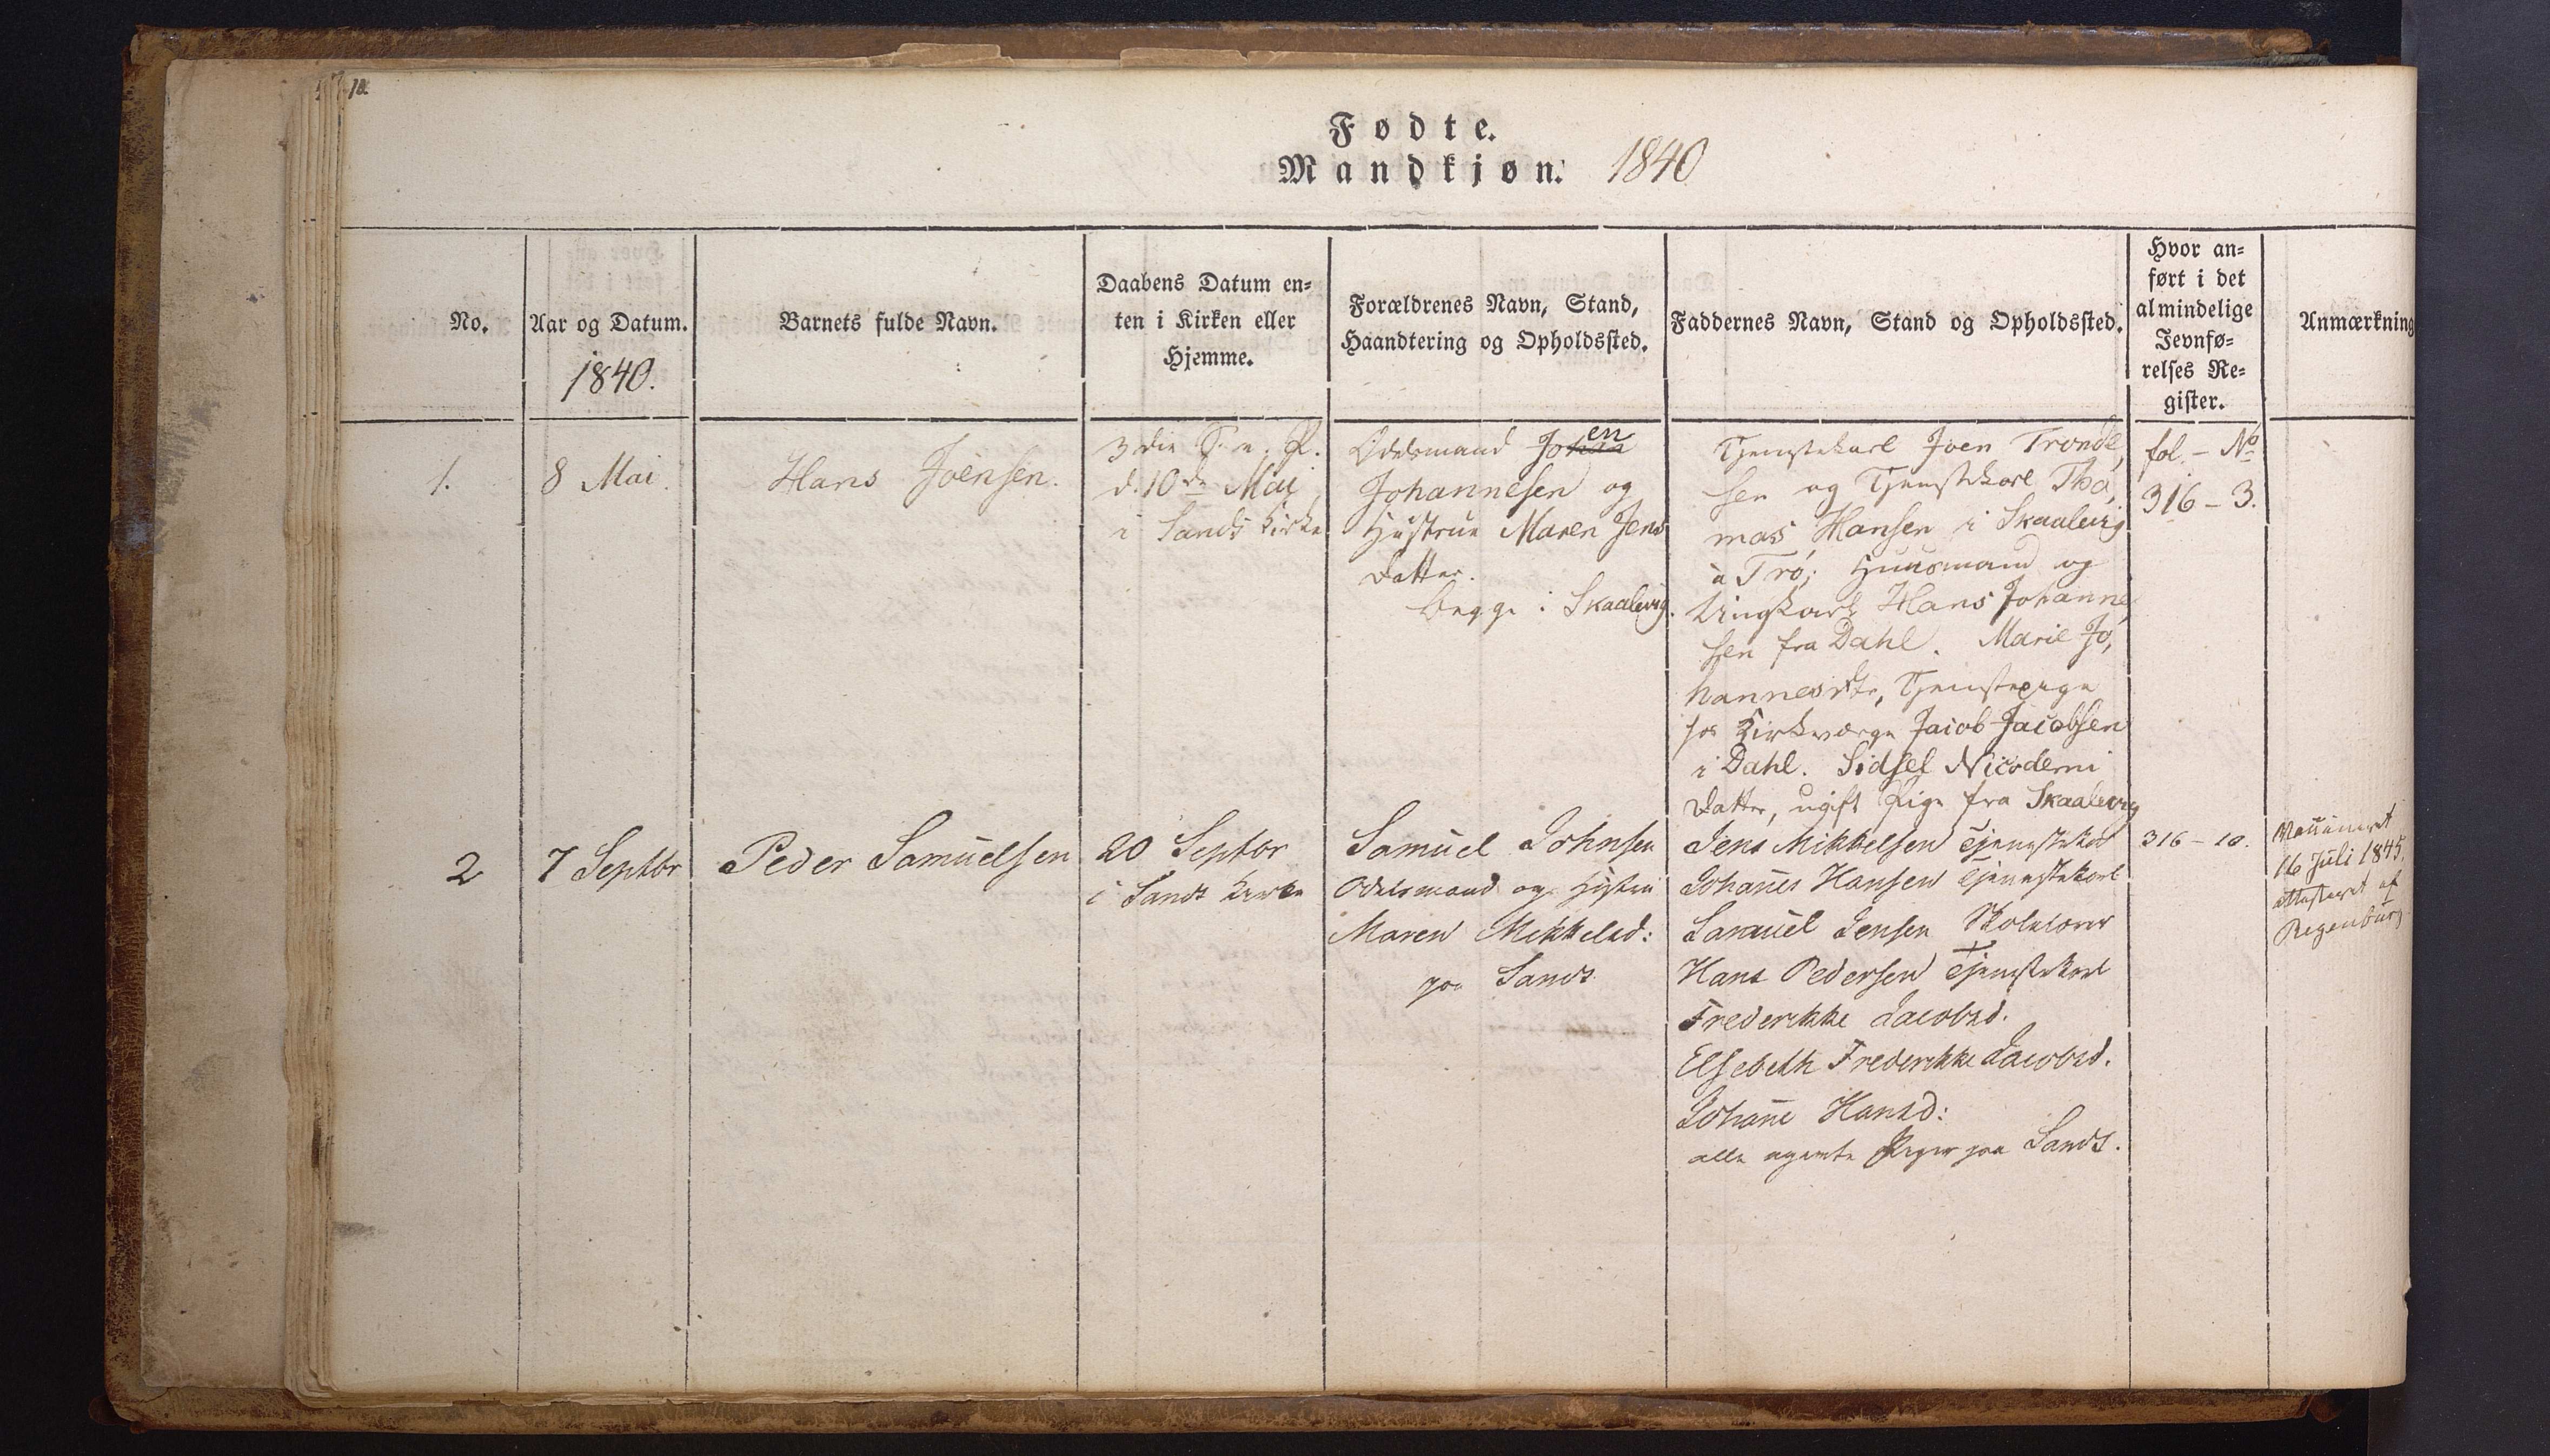 10.
Fødte.
Mandkjøn. 1840
No.
Aar og Datum.
1840.
Barnets fulde Navn.
Daabens Datum en-
ten i Kirken eller
Hjemme.
Forældrenes Navn, Stand,
Haandtering og Opholdssted.
Faddernes Navn, Stand og Opholdssted.
Hvor an-
ført i det
almindelige
Jevnfø-
relses Re-
gister.
Anmærkning
1.
8 Mai.
Hans Joensen.
3die S. e. P.
d. 10de Mai
i Sands Kirke
Odelsmand Johan en
Johannesen og
Hustrue Maren Jens
datter.
begge i Skaalevig.
Tjenstekarl Joen Tronds,
sen og Tjenstekarl Tho,
mas Hansen i Skaalevig
a Trö; Huusmand og
Ungkarl Hans Johanne,
sen fra Dahl. Marie Jo,
hannesdtr, Tjenstepige
hos Kirkeværge Jacob Jacobsen
i Dahl. Sidsel Nicodemi
datter, ugift Pige fra Skaalevig
fol. - No
316 - 3.
2
7 Septbr
Peder Samuelsen
20 Septbr
i Sands Kirke
Samuel Johnsen
Odelsmand og Hustru
Maren Mikkelsd:
paa Sand
Jens Mikkelsen Tjenestekarl
Johanes Hansen Tjenestekarl
Samuel Jensen Skolelærer
Hans Pedersen Tjenstekarl
Frederikke Jacobsd.
Elsebeth Frederikke Jacobsd.
Johane Hansd:
alle ugivte Piger paa Sand.
316 - 10.
Vaccineret
16 Juli 1845,
attesteret af
Regenburg